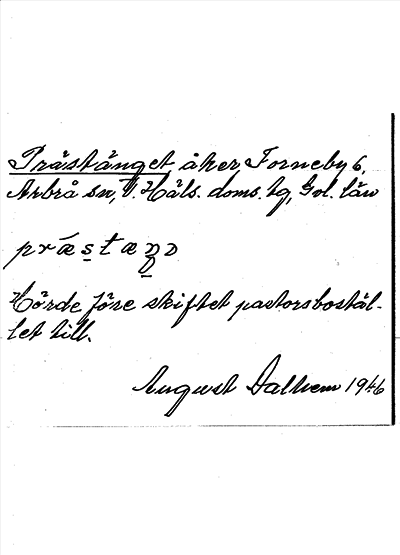 Prästänget, åker, Forneby 6,
Arbrå sn, V. Häls. doms. tg, Gvl. län
præstæŋɔ
Hörde före skiftet pastorsbostäl-
let till.
August Dalhem 1946